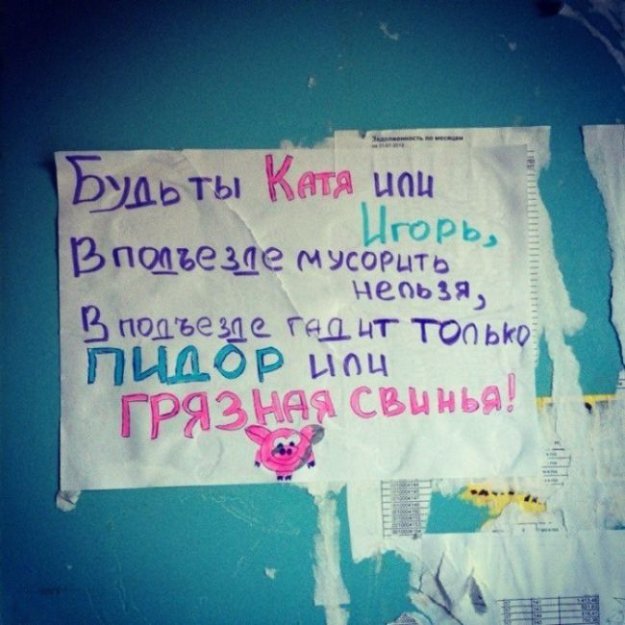 Задолженность по месяцам
Будь ты Катя или
Игорь,
В подъезде мусорить
нельзя,
В подъезде гадит только
ПИДОР или
ГРЯЗНАЯ СВИНЬЯ!